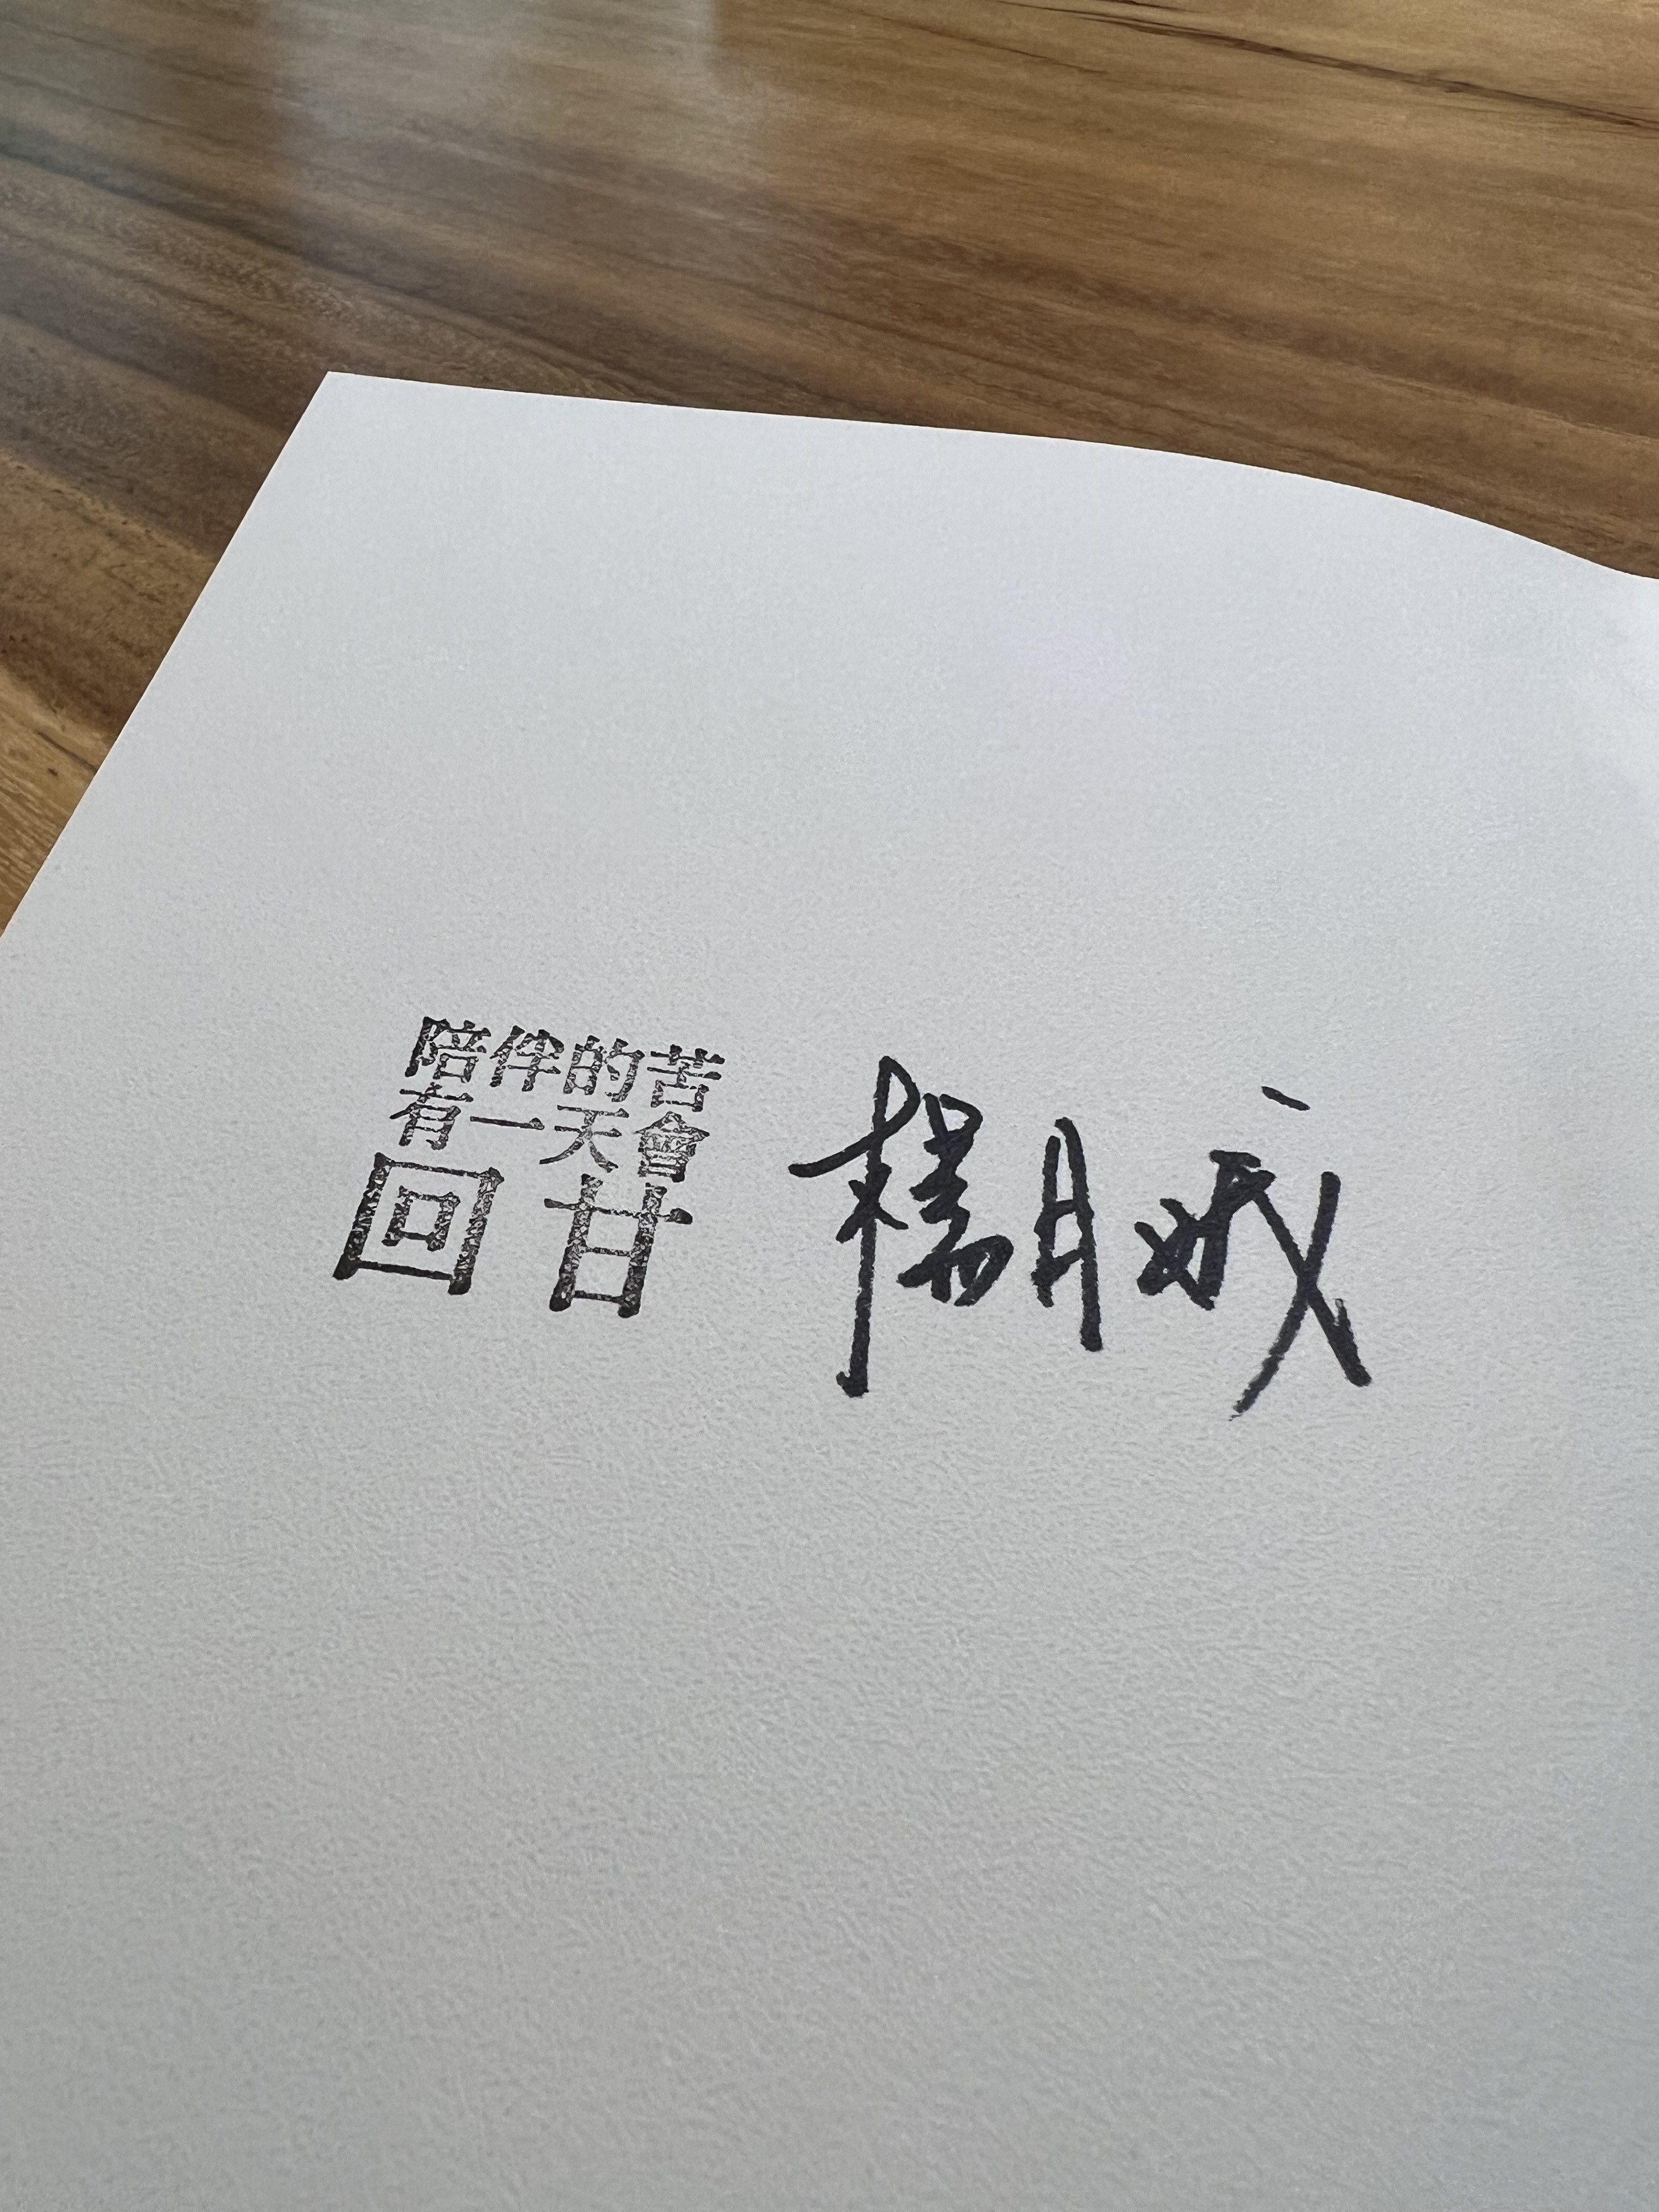 陪伴的苦
有一天會
回甘
楊月娥